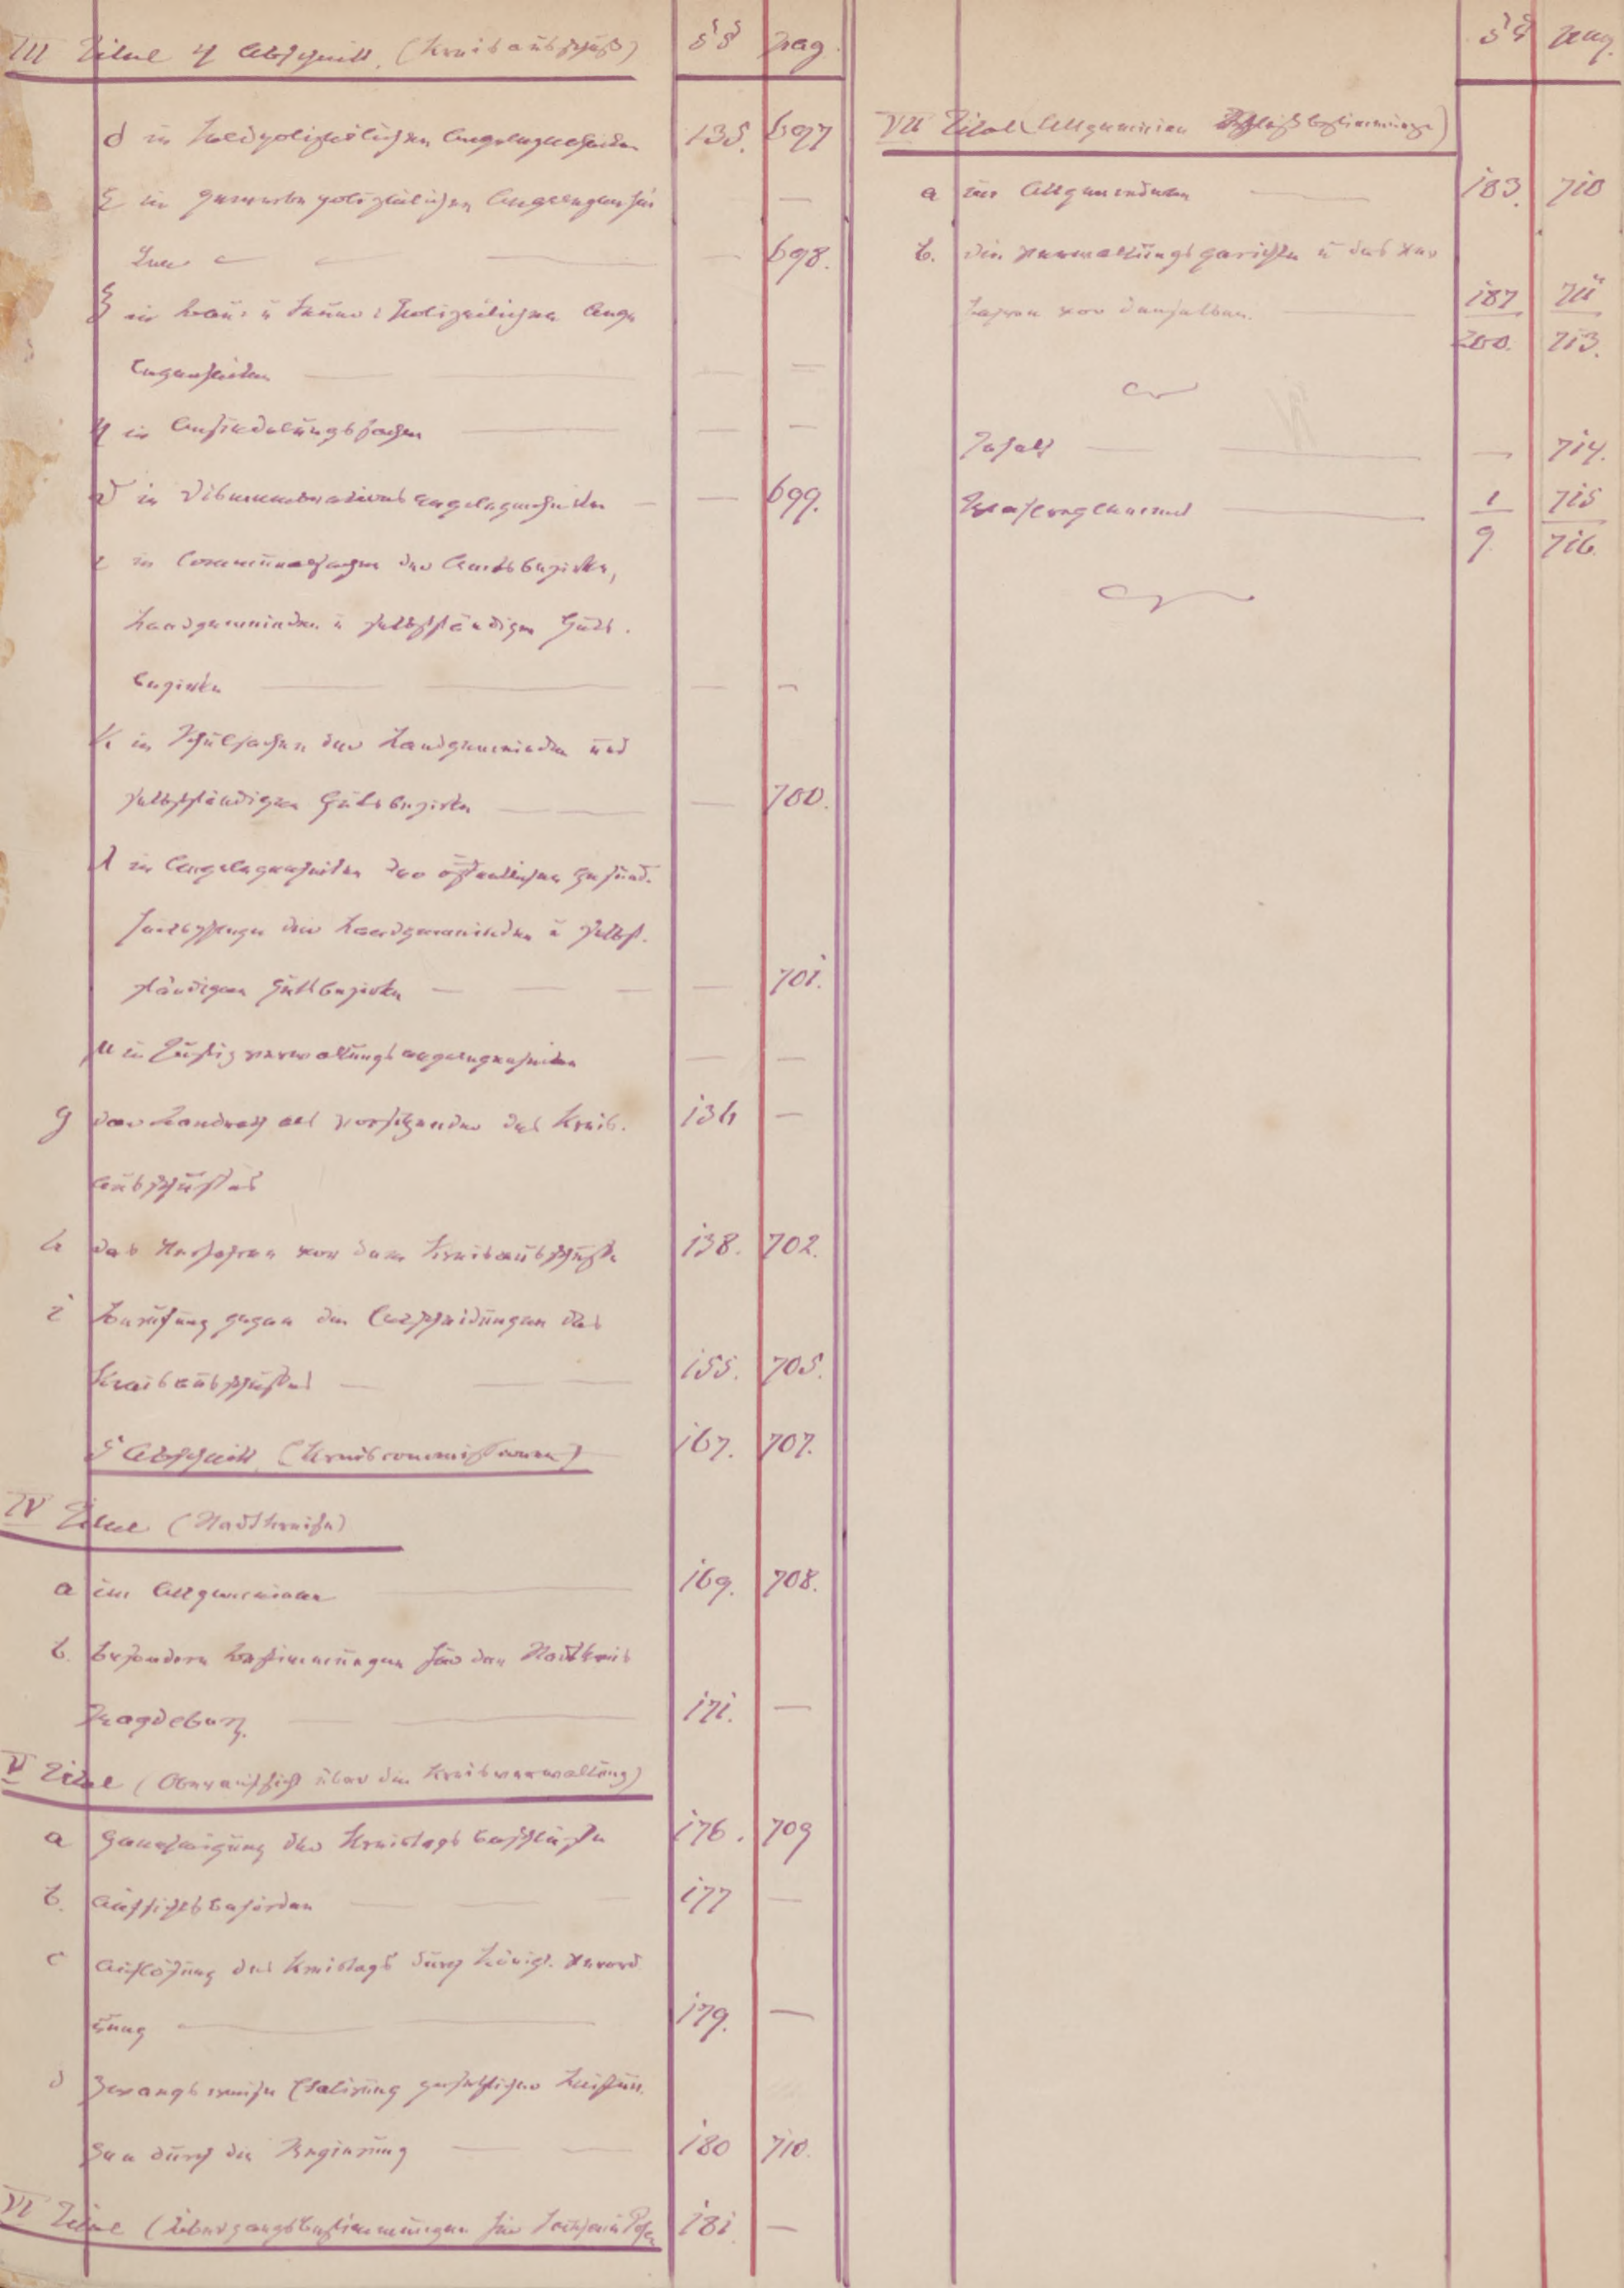 III Titel 4 Abschnitt. (Kreisausschuß) §§ pag.
δ in feldpolizeilichen Angelegenheiten 135. 697
ε in gewerbepolizeilichen Angelegenhei —
ten — — 698.
ζ in Bau- u Feuer-Polizeilichen Ange
legenheiten — — —
η in Ansiedelungssachen — — —
ϑ in Dismembrationsangelegenheiten — — 699.
ι in Communalsachen der Amtsbezirke,
Landgemeinden u selbstständigen Guts-
bezirke — — —
κ in Schulsachen der Landgemeinden und
selbstständigen Gutsbezirke — — 700.
λ in Angelegenheiten der öffentlichen Gesund-
heitspflege der Landgemeinden u selbst-
ständigen Gutsbezirke — — 701.
μ in Justizverwaltungsangelegenheiten — —
g der Landrath als Vorsitzender des Kreis- 136 —
ausschusses
h das Verfahren vor dem Kreisausschusse 138. 702.
i Berufung gegen die Entscheidungen des
Kreisausschusses — 155. 705.
5 Abschnitt (Kreiscommissionen) 167. 707.
IV Titel (Stadtkreise)
a im Allgemeinen — 169. 708.
b. besondere Bestimmungen für den Stadtkreis
Magdeburg. — 171. —
V Titel (Oberaufsicht über die Kreisverwaltung)
a Genehmigung der Kreistagsbeschlüsse 176. 709
b. Aufsichtsbehörden — 177 —
c Auflösung des Kreistags durch Königl. Verord
nung — 179. —
d Zwangsweise Etatisirung gesetzlicher Leistun
gen durch die Regierung — 180 710.
VI Titel (Übergangsbestimmungen für Posen 181. —
§§ pag.
VII Titel (Allgemeine Schlußbestimmungen)
a im Allgemeinen — 183. 710
b. die Verwaltungsgerichte u das Ver
fahren vor denselben. — 187 711
200. 713.
Inhalt — — 714.
Wahlreglement — 1 715
9. 716.